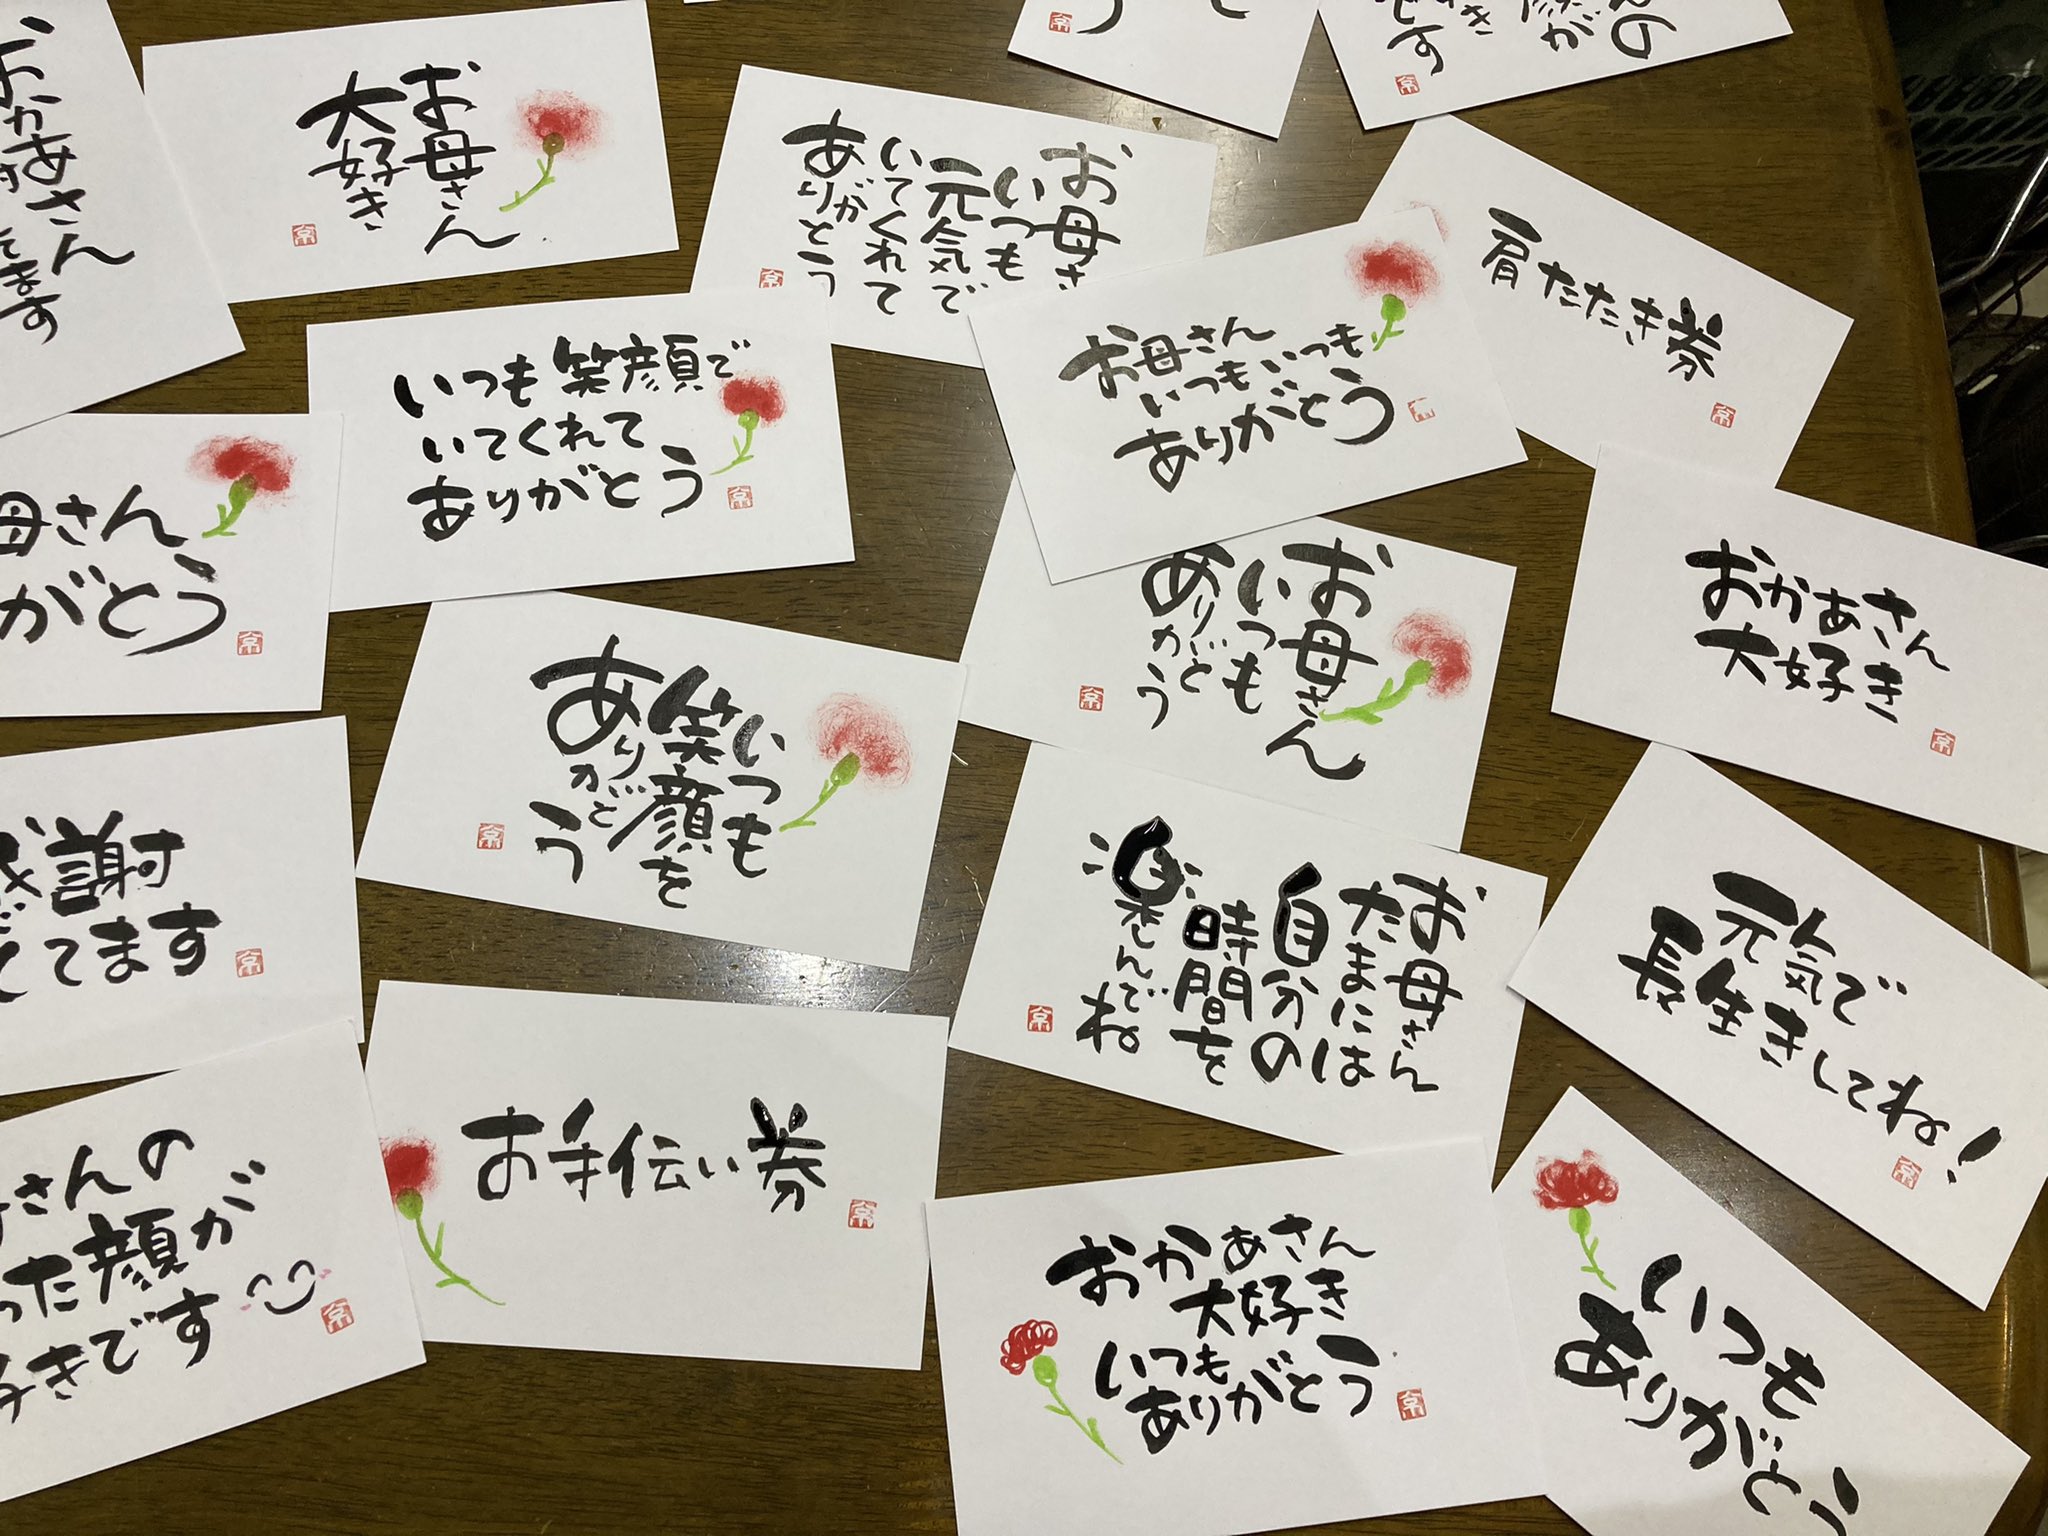 おかあさん
てます
お母さん
大好き
お母さ
いつも
元気で
いてくれて
ありがとう
です
肩たたき券
いつも笑顔で
いてくれて
ありがとう
お母さん
いつもいつも
ありがとう
母さん
がとう
いつも
笑顔を
ありがとう
お母さん
いつも
ありがとう
おかあさん
大好き
感謝
してます
お母さん
たまには
自分の
時間を
楽しんでね
元気で
長生きしてね!
さんの
った顔が
好きです
お手伝い券
おかあさん
大好き
いつも
ありがとう
いつも
ありがとう